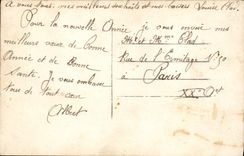 à vous tous, mes meilleurs souhaits et mes baisers
Pour la nouvelle Année je vous envoie mes
meilleurs vœux de bonne
Année et de Bonne
Santé. Je vous embrasse
tous de tout cœur
Albert
Mr et Mme
Rue de l'Ermitage No 50
à Paris
XXe